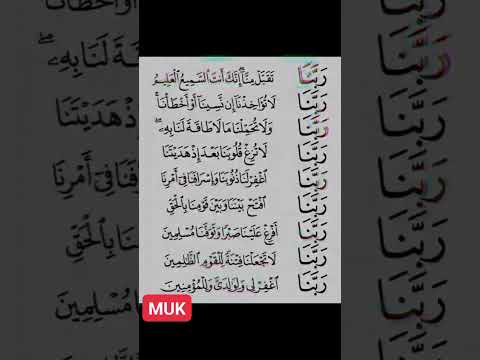 رَبَّنَا تَقَبَّلْ مِنَّا إِنَّكَ أَنتَ السَّمِيعُ الْعَلِيمُ
رَبَّنَا لَا تُؤَاخِذْنَا إِن نَّسِينَا أَوْ أَخْطَأْنَا
رَبَّنَا وَلَا تُحَمِّلْنَا مَا لَا طَاقَةَ لَنَا بِهِ
رَبَّنَا لَا تُزِغْ قُلُوبَنَا بَعْدَ إِذْ هَدَيْتَنَا
رَبَّنَا اغْفِرْ لَنَا ذُنُوبَنَا وَإِسْرَافَنَا فِي أَمْرِنَا
رَبَّنَا افْتَحْ بَيْنَنَا وَبَيْنَ قَوْمِنَا بِالْحَقِّ
رَبَّنَا أَفْرِغْ عَلَيْنَا صَبْرًا وَتَوَفَّنَا مُسْلِمِينَ
رَبَّنَا لَا تَجْعَلْنَا فِتْنَةً لِّلْقَوْمِ الظَّالِمِينَ
رَبَّنَا اغْفِرْ لِي وَلِوَالِدَيَّ وَلِلْمُؤْمِنِينَ
MUK